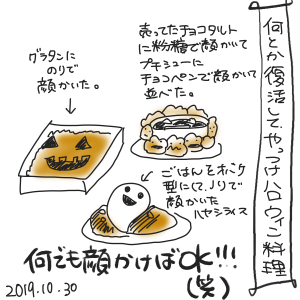 何とか復活して、やっつけハロウィン料理
売ってたチョコタルト
に粉糖で顔かいて
プチシューに
チョコペンで顔かいて
並べた。
グラタンに
のりで
顔かいた。
ごはんをオバケ
型にして、ノリで
顔かいた
ハヤシライス
何でも顔かけばOK!!!
(笑)
2019.10.30